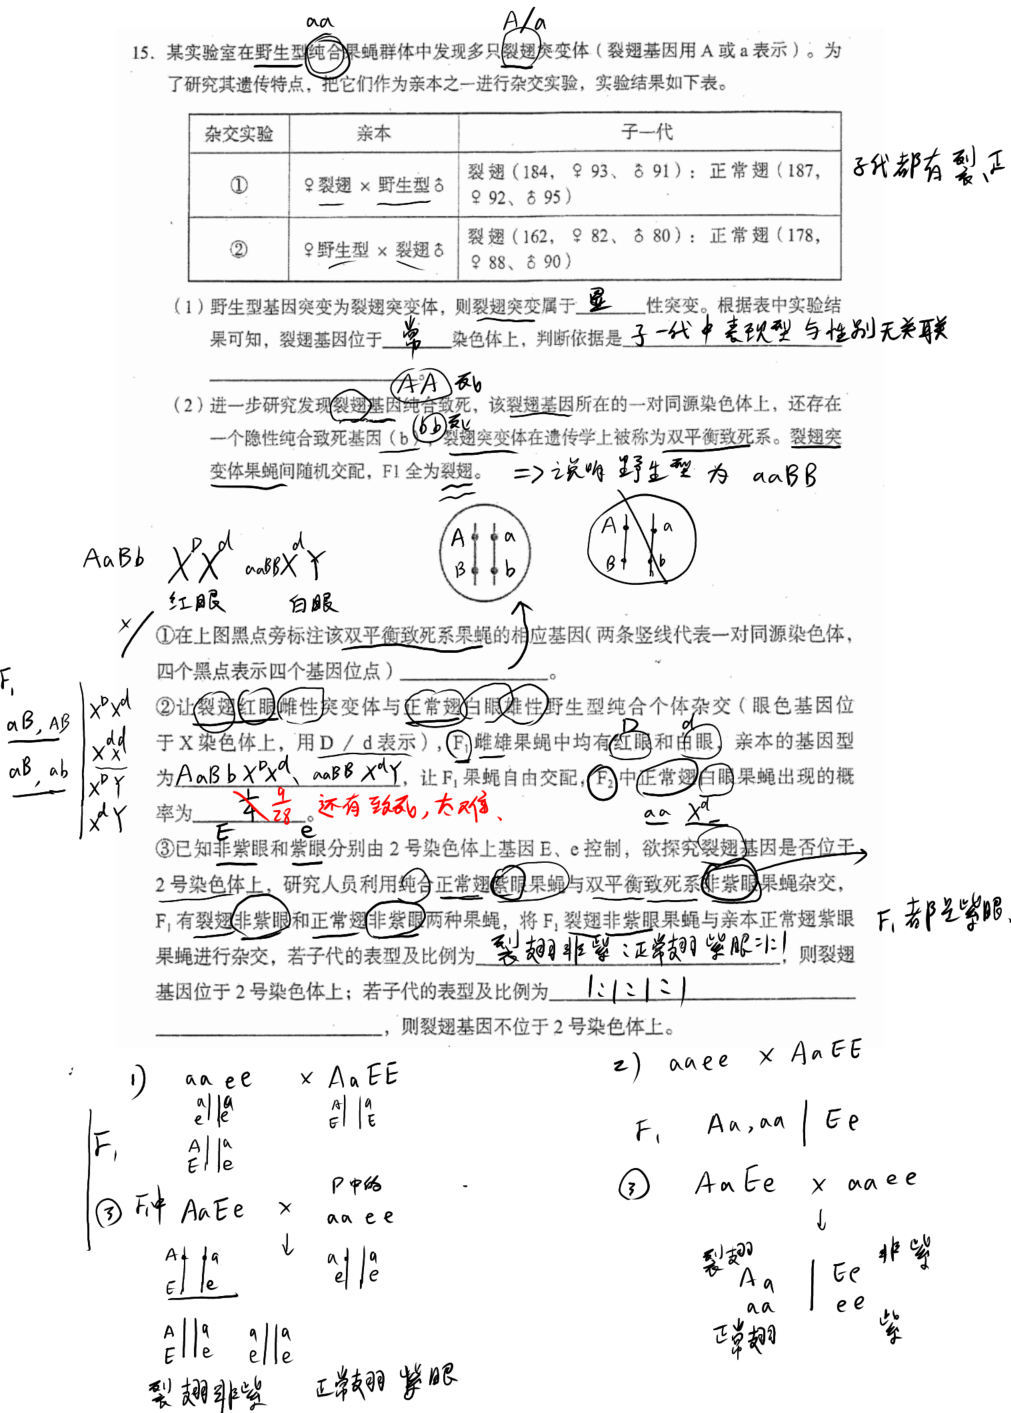 aa
A/a
15. 某实验室在野生型纯合果蝇群体中发现多只裂翅突变体（裂翅基因用 A 或 a 表示）。为
了研究其遗传特点，把它们作为亲本之一进行杂交实验，实验结果如下表。
杂交实验 亲本 子一代
① ♀裂翅 × 野生型♂ 裂翅（184，♀93、♂91）：正常翅（187，
♀92、♂95）
子代都有裂、正
② ♀野生型 × 裂翅♂ 裂翅（162，♀82、♂80）：正常翅（178，
♀88、♂90）
（1）野生型基因突变为裂翅突变体，则裂翅突变属于 显 性突变。根据表中实验结
果可知，裂翅基因位于 常 染色体上，判断依据是 子一代中表现型与性别无关联
。
AA 死
（2）进一步研究发现裂翅基因纯合致死，该裂翅基因所在的一对同源染色体上，还存在
bb 死
一个隐性纯合致死基因（b），裂翅突变体在遗传学上被称为双平衡致死系。裂翅突
变体果蝇间随机交配，F1 全为裂翅。 => 说明 野生型 为 aaBB
A a A a
B b B b
AaBb XᴰXᵈ aaBB XᵈY
红眼 白眼
×
①在上图黑点旁标注该双平衡致死系果蝇的相应基因（两条竖线代表一对同源染色体，
四个黑点表示四个基因位点）。
F₁
aB, AB XᴰXᵈ
aB, ab XᵈXᵈ
XᴰY
XᵈY
②让裂翅红眼雌性突变体与正常翅白眼雄性野生型纯合个体杂交（眼色基因位
于 X 染色体上，用 D / d 表示），F₁ 雌雄果蝇中均有红眼和白眼，亲本的基因型
D d
为 AaBb XᴰXᵈ、aaBB XᵈY ，让 F₁ 果蝇自由交配，F₂ 中正常翅白眼果蝇出现的概
率为 1/4 9/28 。还有致死，太难、
aa Xᵈ
E e
③已知非紫眼和紫眼分别由 2 号染色体上基因 E、e 控制，欲探究裂翅基因是否位于
2 号染色体上，研究人员利用纯合正常翅紫眼果蝇与双平衡致死系非紫眼果蝇杂交，
F₁ 有裂翅非紫眼和正常翅非紫眼两种果蝇，将 F₁ 裂翅非紫眼果蝇与亲本正常翅紫眼
F₁ 都是紫眼、
果蝇进行杂交，若子代的表型及比例为 裂翅非紫：正常翅 紫眼=1:1 ，则裂翅
基因位于 2 号染色体上；若子代的表型及比例为 1:1:1:1
，则裂翅基因不位于 2 号染色体上。
1) aa ee × AaEE
a a A a
e e E E
F₁
A a
E e
③ F₁中 AaEe × P中的
aa ee
↓
A a a a
E e e e
A a a a
E e e e
裂翅非紫 正常翅 紫眼
2) aaee × AaEE
F₁ Aa, aa | Ee
③ AaEe × aaee
↓
裂翅 Aa | Ee 非紫
aa ee
正常翅 紫